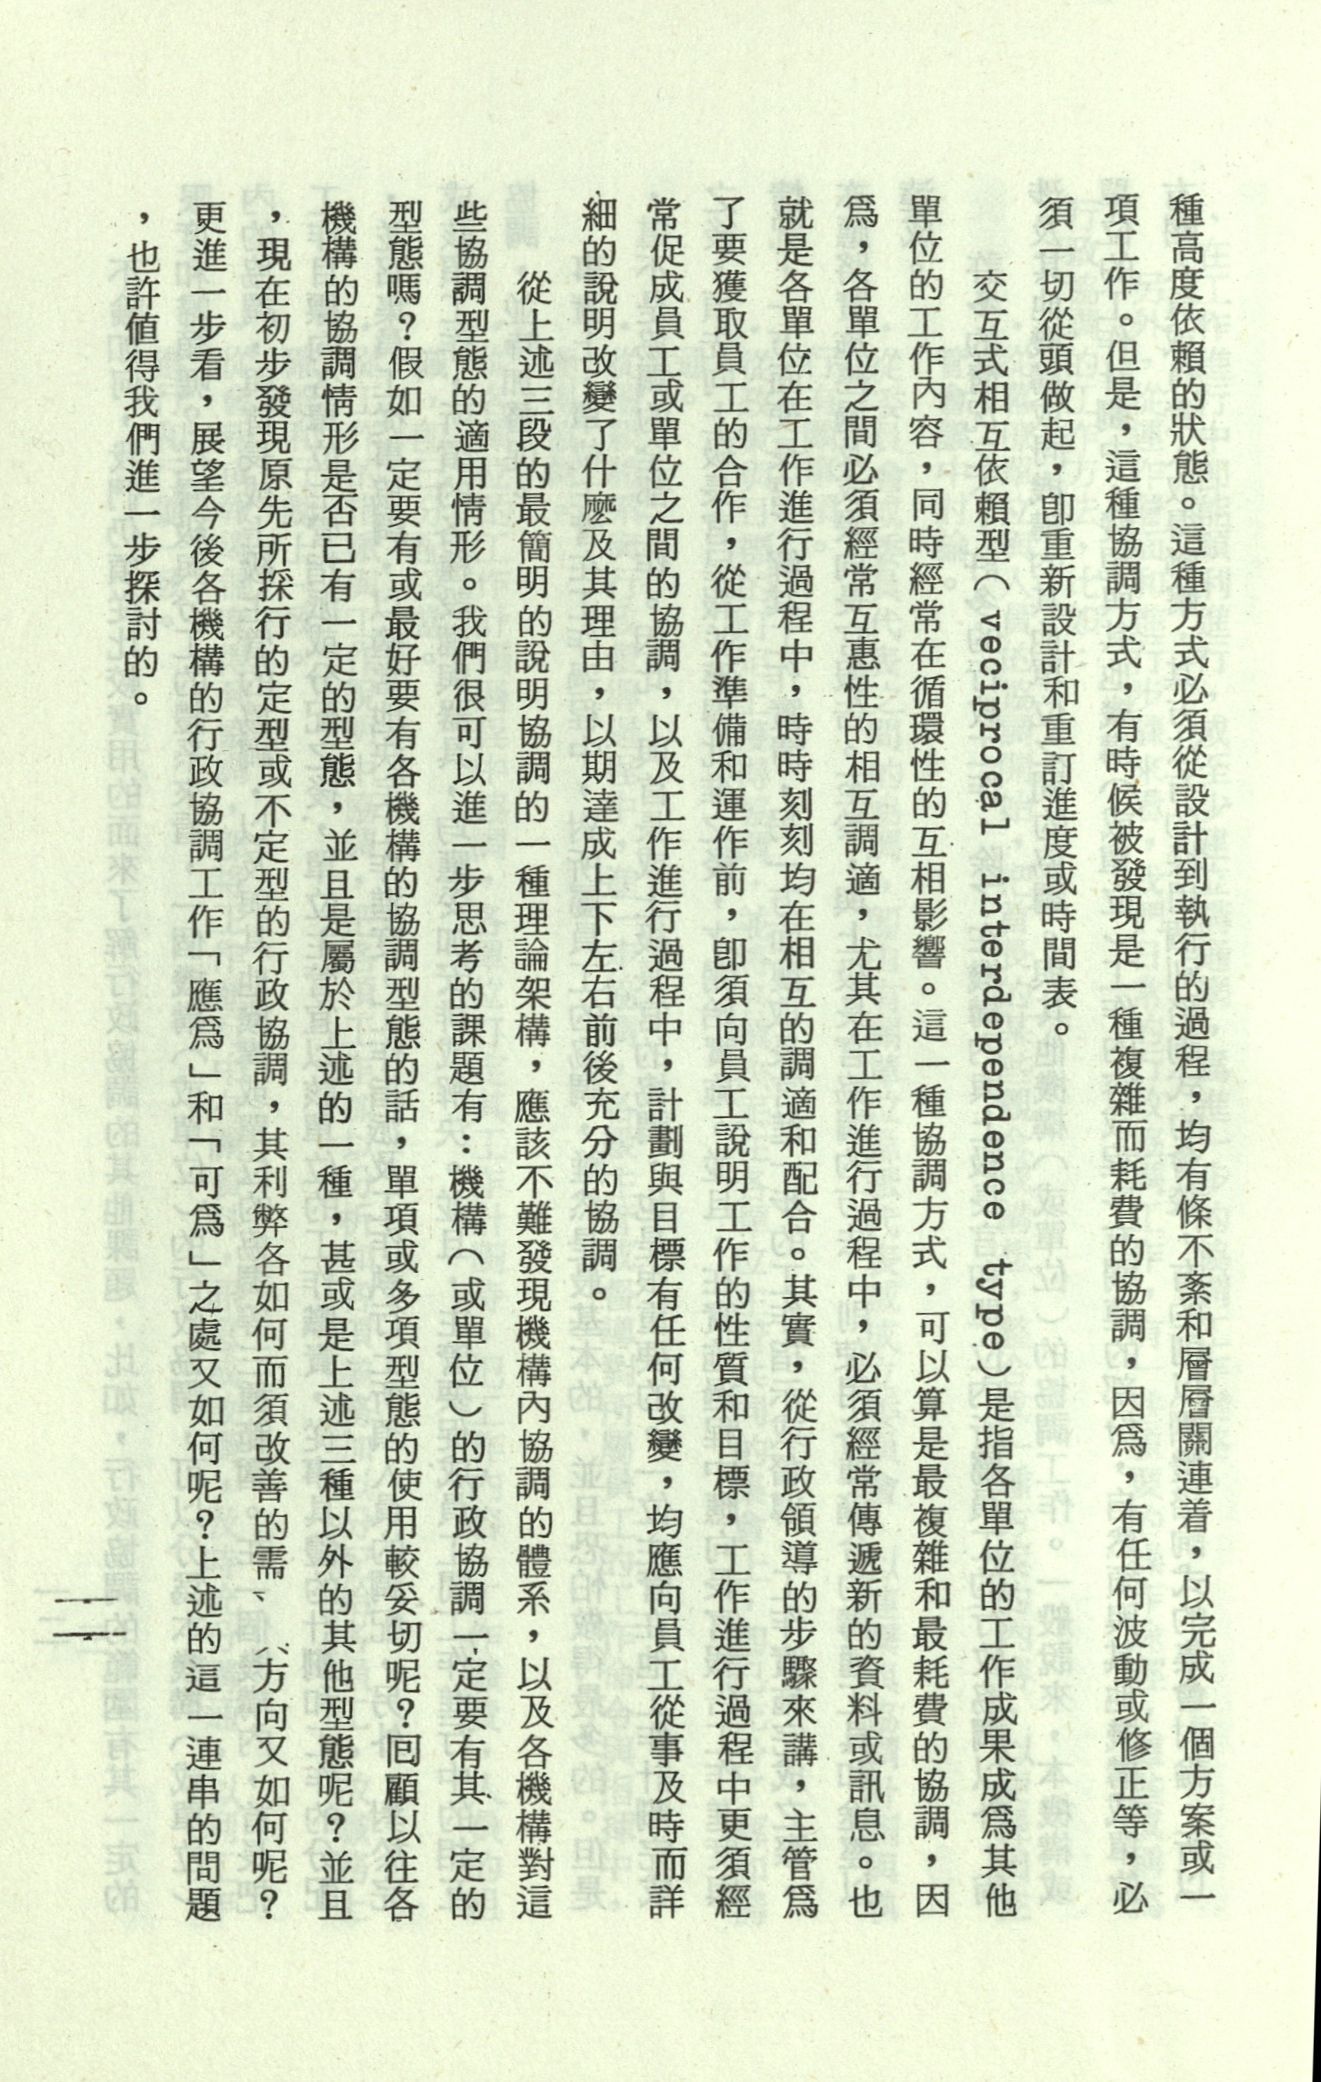 種高度依賴的狀態。這種方式必須從設計到執行的過程，均有條不紊和層層關連着，以完成一個方案或一
項工作。但是，這種協調方式，有時候被發現是一種複雜而耗費的協調，因爲，有任何波動或修正等，必
須一切從頭做起，卽重新設計和重訂進度或時間表。
交互式相互依賴型（veciprocal interdependence type）是指各單位的工作成果成爲其他
單位的工作內容，同時經常在循環性的互相影響。這一種協調方式，可以算是最複雜和最耗費的協調，因
爲，各單位之間必須經常互惠性的相互調適，尤其在工作進行過程中，必須經常傳遞新的資料或訊息。也
就是各單位在工作進行過程中，時時刻刻均在相互的調適和配合。其實，從行政領導的步驟來講，主管爲
了要獲取員工的合作，從工作準備和運作前，卽須向員工說明工作的性質和目標，工作進行過程中更須經
常促成員工或單位之間的協調，以及工作進行過程中，計劃與目標有任何改變，均應向員工從事及時而詳
細的說明改變了什麽及其理由，以期達成上下左右前後充分的協調。
從上述三段的最簡明的說明協調的一種理論架構，應該不難發現機構內協調的體系，以及各機構對這
些協調型態的適用情形。我們很可以進一步思考的課題有：機構（或單位）的行政協調一定要有其一定的
型態嗎？假如一定要有或最好要有各機構的協調型態的話，單項或多項型態的使用較妥切呢？囘顧以往各
機構的協調情形是否已有一定的型態，並且是屬於上述的一種，甚或是上述三種以外的其他型態呢？並且
，現在初步發現原先所採行的定型或不定型的行政協調，其利弊各如何而須改善的需、方向又如何呢？
更進一步看，展望今後各機構的行政協調工作「應爲」和「可爲」之處又如何呢？上述的這一連串的問題
，也許値得我們進一步探討的。